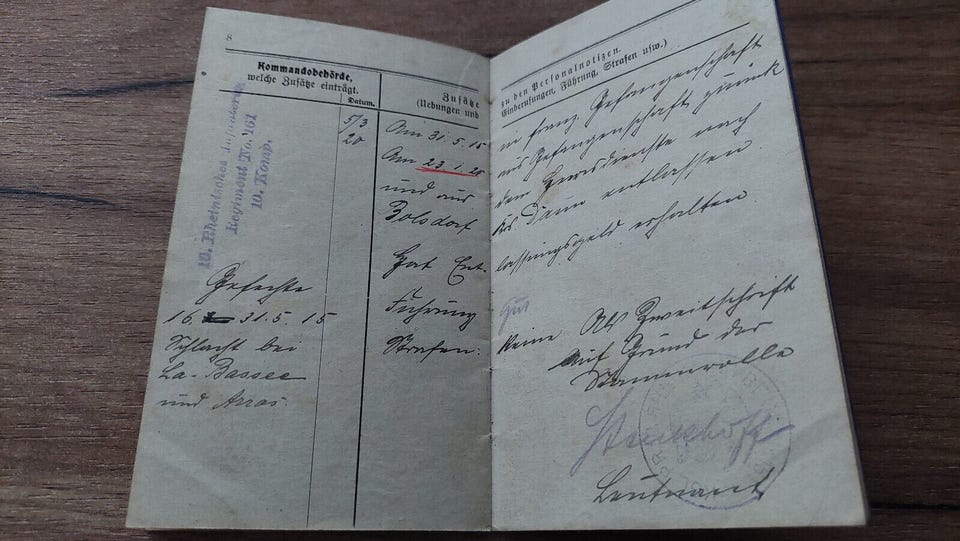 8
Kommandobehörde,
welche Zusätze einträgt.
Datum.
10. Rheinisches Infanterie
Regiment No. 161
10. Komp.
5/3
20
Gefechte
16. 31.5.15
Schlacht bei
La-Bassee
und Arras.
Zusätze
(Uebungen und
zu den Personalnotizen.
Einberufungen, Führung, Strafen usw.)
Am 31.5.15 in franz. Gefangenschaft
Am 23.1.20 aus Gefangenschaft zurück
und aus dem Heeresdienste nach
Bolsdorf Krs. Daun entlassen.
Hat Entlassungsgeld erhalten.
Führung gut
Strafen: keine
Als Zweitschrift
Auf Grund der
Stammrolle
Leutnant